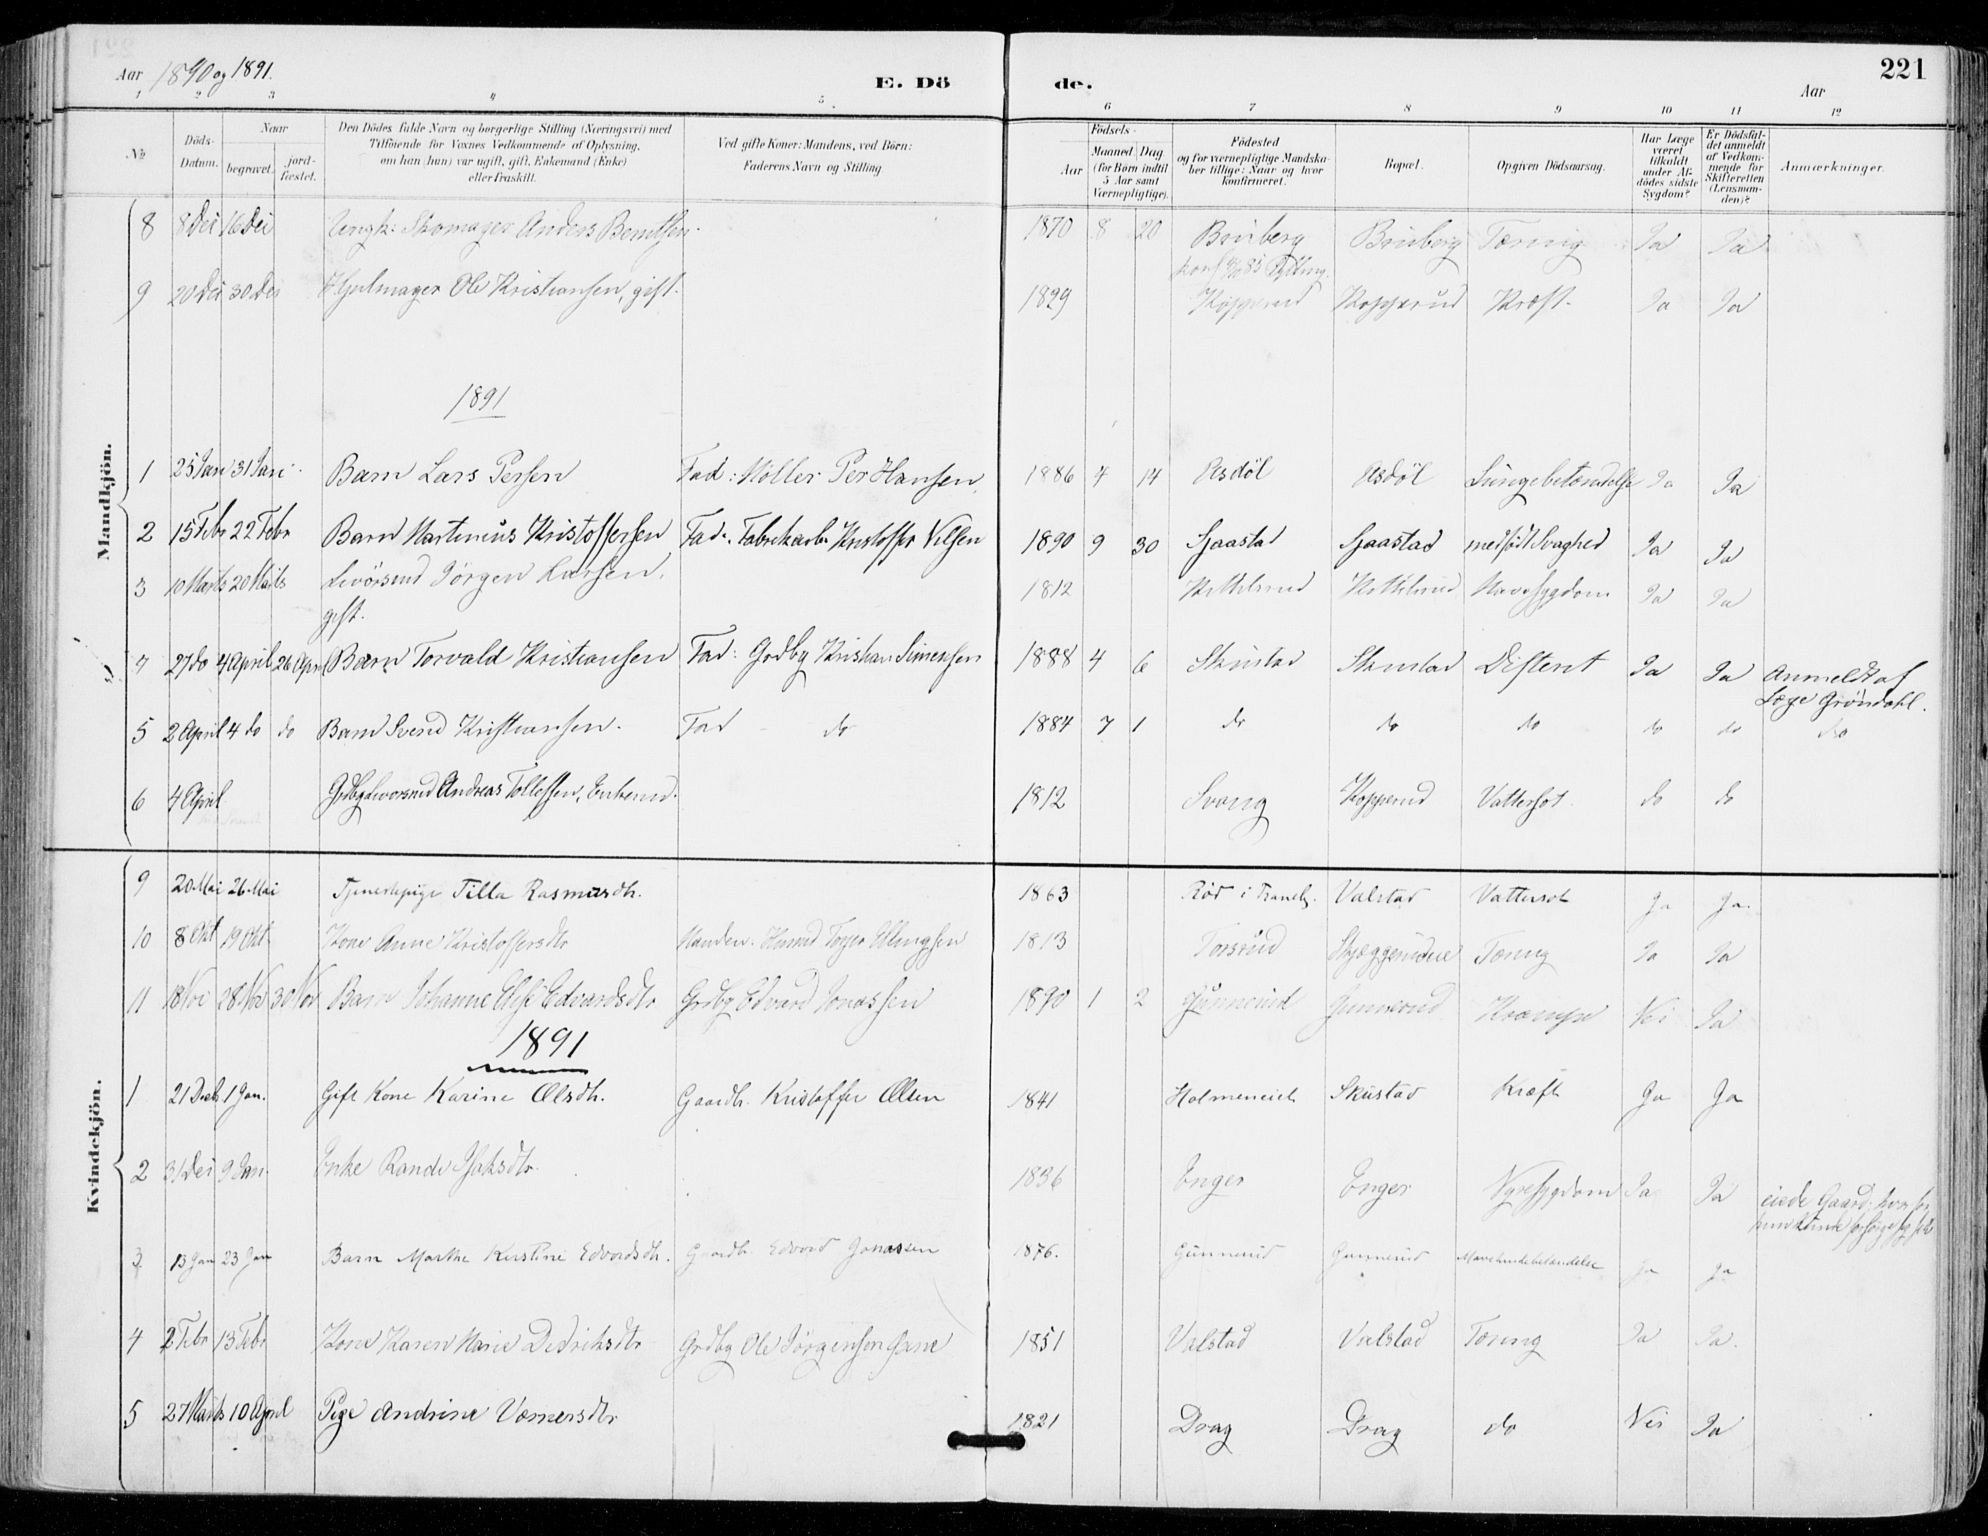 Aar 1890 og 1891.
E. Dö de.
Aar
221
1 2 3 4 5 6 7 8 9 10 11 12
No
Döds-Datum.
Naar
begravet.
jord-fæstet.
Den Dödes fulde Navn og borgerlige Stilling (Næringsvei) med
Tilföiende for Voxnes Vedkommende af Oplysning,
om han (hun) var ugift, gift, Enkemand (Enke)
eller fraskilt.
Ved gifte Koner: Mandens, ved Börn:
Faderens Navn og Stilling
Födsels-
Aar
Maaned Dag
(for Børn indtil
5 Aar samt
Værnepligtige).
Födested
og for værnepligtige Mandska-
ber tillige: Naar og hvor
konfirmeret.
Bopæl.
Opgiven Dödsaarsag.
Har Læge
været
tilkaldt
under Af-
dödes sidste
Sygdom?
Er Dödsfal-
det anmeldt
af Vedkom-
mende for
Skifteretten
(Lensman-
den)?
Anmærkninger.
Mandkjön.
8 8 Dec 16 Dec Ungk: Skomager Anders Berntsen. 1870 8 20 Bruberg Bruberg Tæring Ja Ja
konf 85
9 20 Dec 30 Dec Hjulmager Ole Kristiansen, gift. 1829 Kopperud Kopperud Kræft. Ja Ja
1891
1 25 Jan 31 Jan Barn Lars Persen Fad: Möller Per Hansen 1886 4 14 Asdøl Asdøl Lungebetændelse Ja Ja
2 15 Febr 22 Febr Barn Martinius Kristoffersen Fad: Fabrikarb. Kristoffer Nilsen 1890 9 30 Sjaastad Sjaastad medfødt Svaghed Ja Ja
3 10 Marts 20 Marts Livörsmd Jörgen Larsen, 1812 Kittilsrud Kittilsrud Mavesygdom Ja Ja
gift.
4 27 do 4 April 26 April Barn Torvald Kristiansen Fad: Grdbg Kristian Simensen 1888 4 6 Skustad Skustad Difterit Ja Ja Anmeldt af
Læge Gröndahl.
5 2 April 4 do do Barn Svend Kristiansen. Fad do 1884 7 1 do do do do do do
6 4 April Grdbg Livorsmd Andreas Tollefsen, Enkemd. 1812 Svang Kopperud Vattersot do do
Kvindekjön.
9 20 Mai 26 Mai Tjenestepige Tilla Rasmusdtr. 1863 Rød i Traneb. Valstad Vattersot Ja Ja.
10 8 Okt 19 Okt Kone Anne Kristoffersdtr Manden: Husmd Ellingsen 1813 Torsrud Tæring Ja Ja
11 18 Nov 28 Nov 30 Nov Barn Johanne Elise Edvardsdtr Grdbg Edvard Jonassen 1890 1 2 Gunnerud Gunnerud Krampe Nei Ja
1891
1 21 Decb 1 Jan. Gift Kone Karine Olsdtr. Gaardbr. Kristoffer Olsen 1841 Skustad Kræft Ja Ja
2 31 Dec 9 Jan. Enke Randi Isaksdtr. 1836 Enger Enger Nyresygdom Ja Ja eiede Gaard; hvorfor
3 13 Jan 23 Jan Barn Marthe Kirstine Edvardsdtr. Gaardbr. Edvard Jonassen 1876. Gunnerud Gunnerud Ja Ja
4 2 Febr 13 Febr Kone Karen Marie Didriksdtr Grdbg Ole Jörgensen 1851 Valstad Valstad Tæring Ja Ja.
5 27 Marts 10 April Pige Andrine Værnersdtr 1821 Drag Drag do Nei Ja